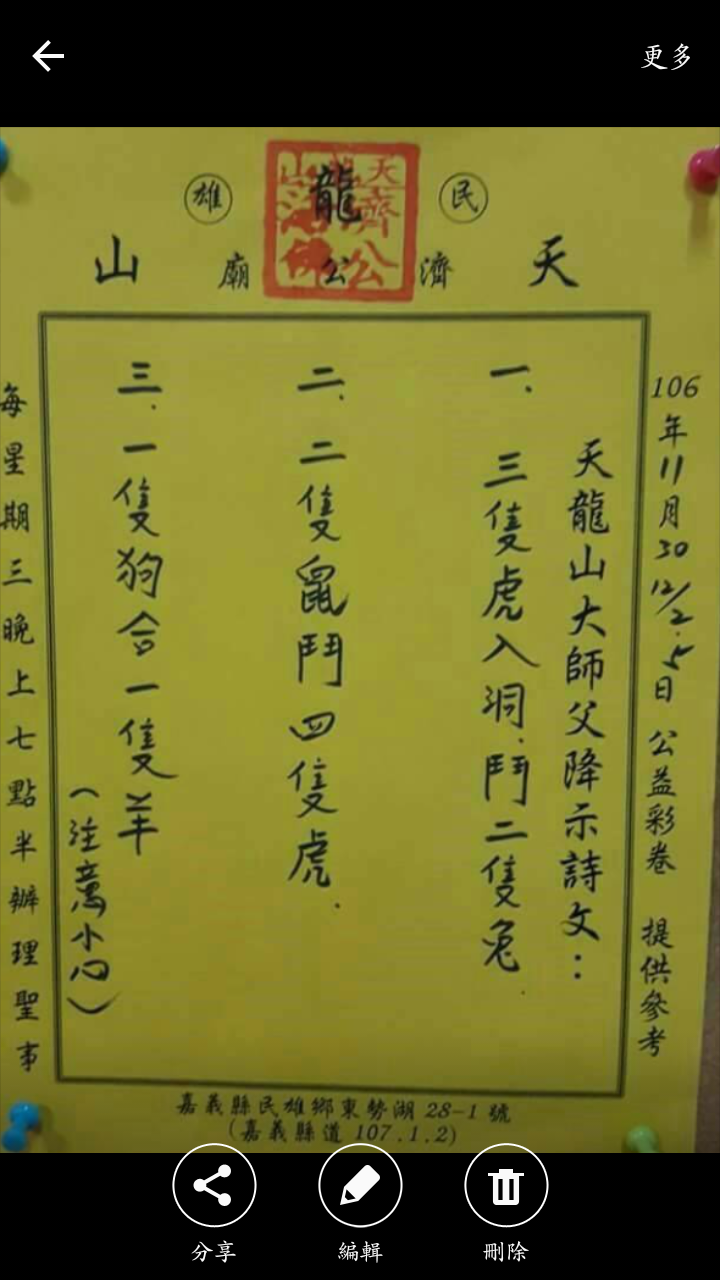 更多
民 雄
天 龍 山
濟公廟
天龍山
濟公
活佛
106年11月30 12/2.5日 公益彩卷 提供參考
天龍山大師父降示詩文：
一、三隻虎入洞.鬥二隻兔.
二、二隻鼠鬥四隻虎.
三.一隻狗合一隻羊
(注意小心)
每星期三晚上七點半辦理聖事
嘉義縣民雄鄉東勢湖28-1號
(嘉義縣道107.1.2)
分享
編輯
刪除